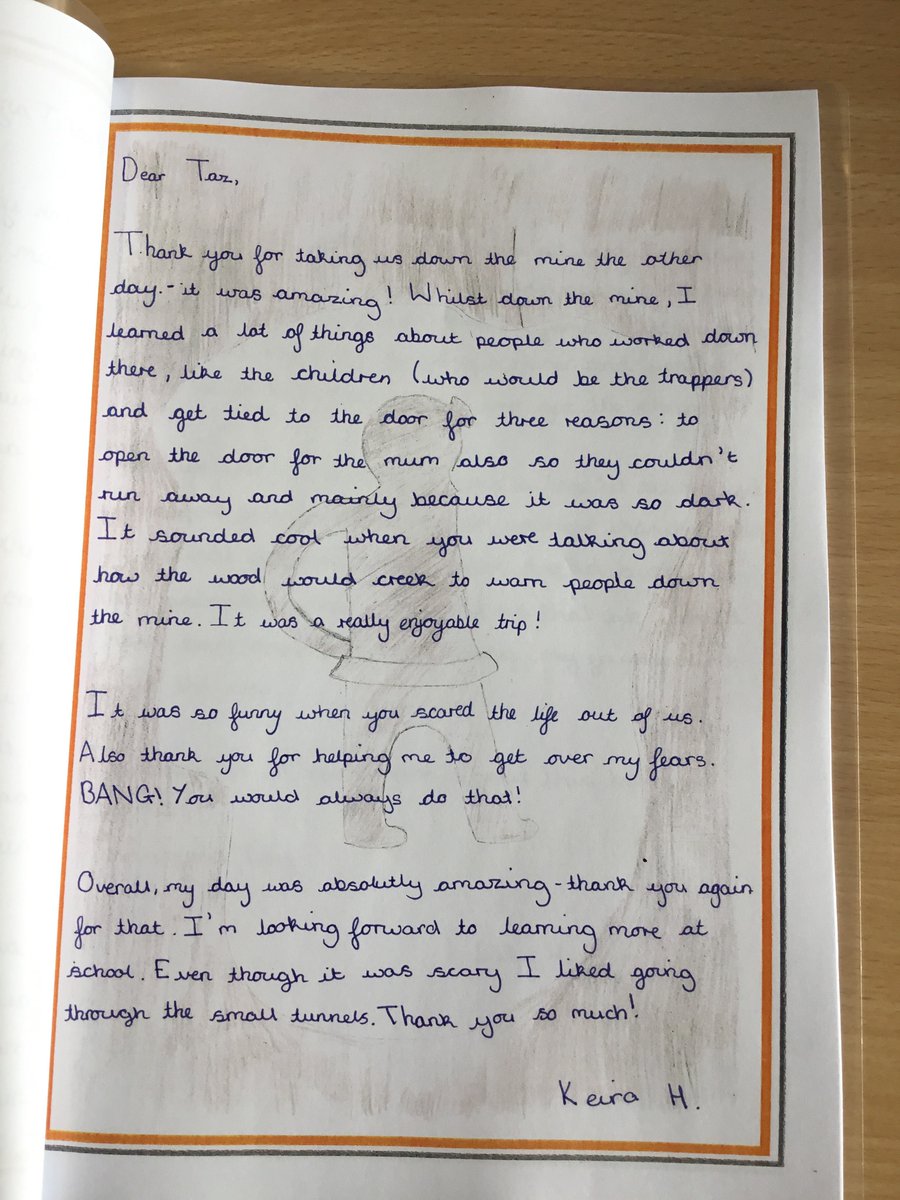 Dear Taz,
Thank you for taking us down the mine the other
day.- it was amazing! Whilst down the mine, I
learned a lot of things about people who worked down
there, like the children (who would be the trappers)
and get tied to the door for three reasons: to
open the door for the mum also so they couldn't
run away and mainly because it was so dark.
It sounded cool when you were talking about
how the wood would creek to warn people down
the mine. It was a really enjoyable trip!
It was so funny when you scared the life out of us.
Also thank you for helping me to get over my fears.
BANG! You would always do that!
Overall, my day was absolutly amazing - thank you again
for that. I'm looking forward to learning more at
school. Even though it was scary I liked going
through the small tunnels. Thank you so much!
Keira H.